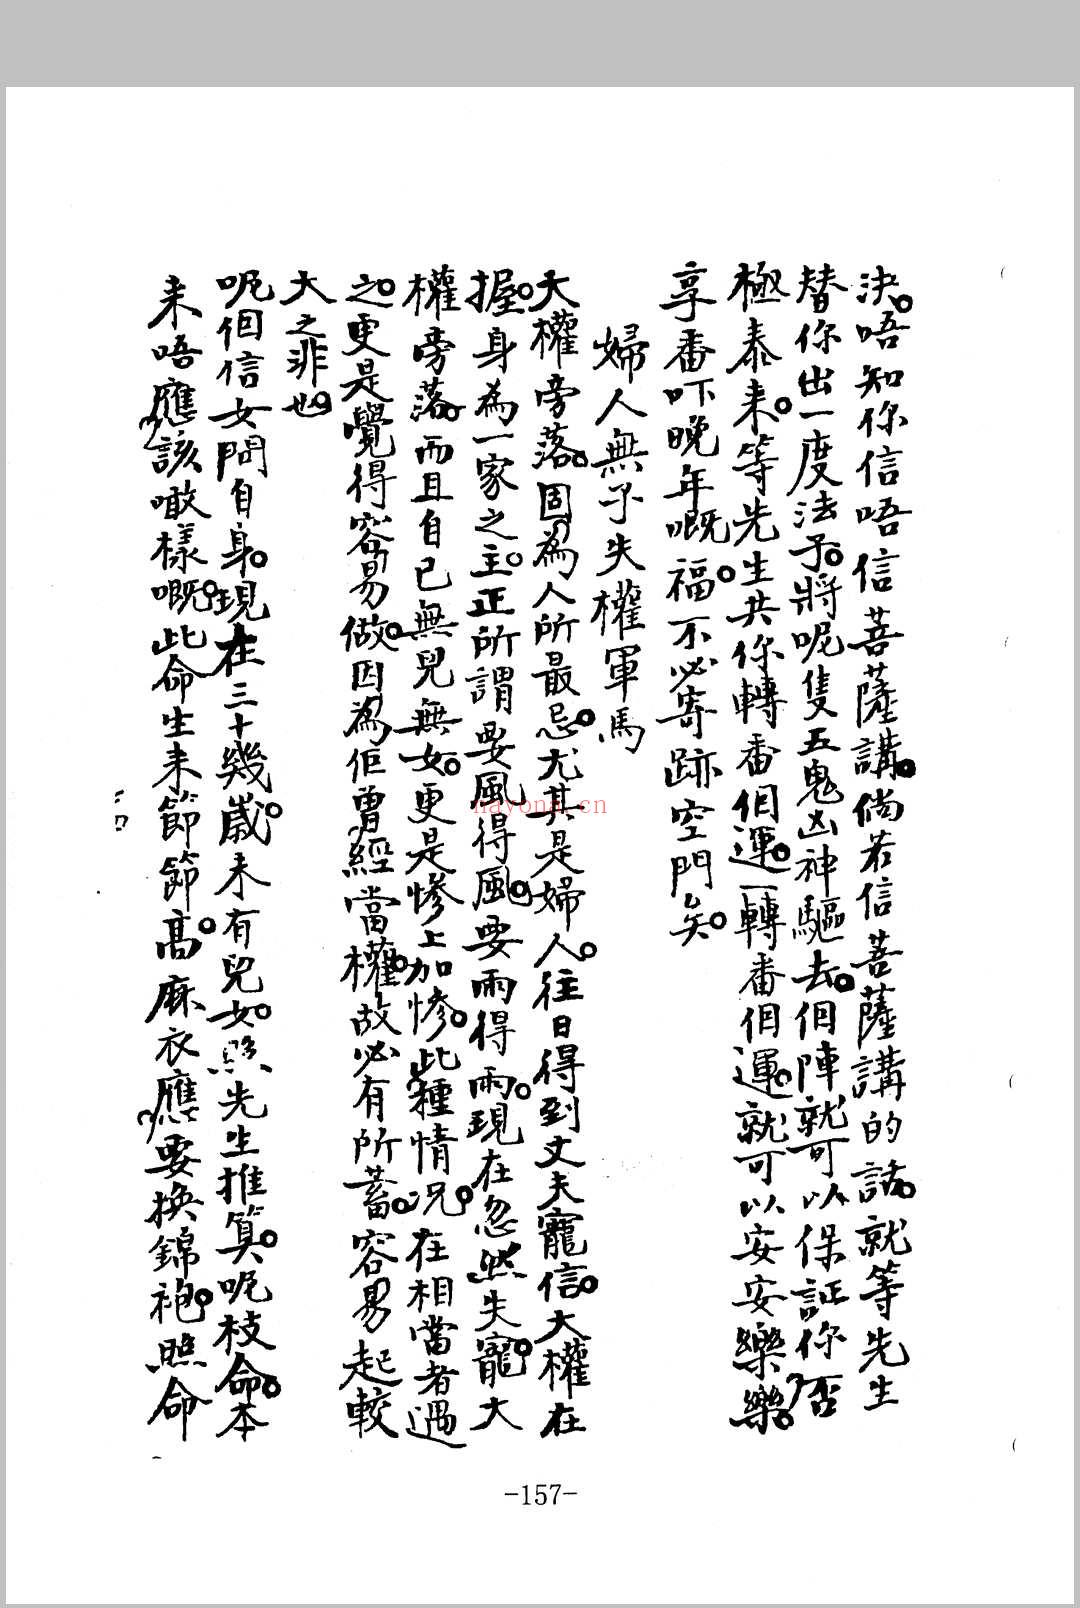 決。唔知你信唔信菩薩講。倘若信菩薩講的話。就等先生
替你出一度法子。將呢隻五鬼凶神驅去。個陣就可以保証你否
極泰来。等先生共你轉番個運。轉番個運。就可以安安樂樂。
享番吓晚年嘅福。不必寄跡空門矣。
婦人無子失權軍馬
大權旁落。固為人所最忌。尤其是婦人。往日得到丈夫寵信。大權在
握。身為一家之主。正所謂要風得風。要雨得雨。現在忽然失寵。大
權旁落。而且自己無兒無女。更是慘上加慘。此種情况。在相當者遇
之。更是覺得容易做。因為佢曾經當權。故必有所蓄。容易起較
大之非也。
呢個信女問自身。現在三十幾歲。未有兒女。照先生推算。呢枝命。本
来唔應該噉樣嘅。此命生来節節高。麻衣應要換錦袍。照命
-157-
nayona.cn